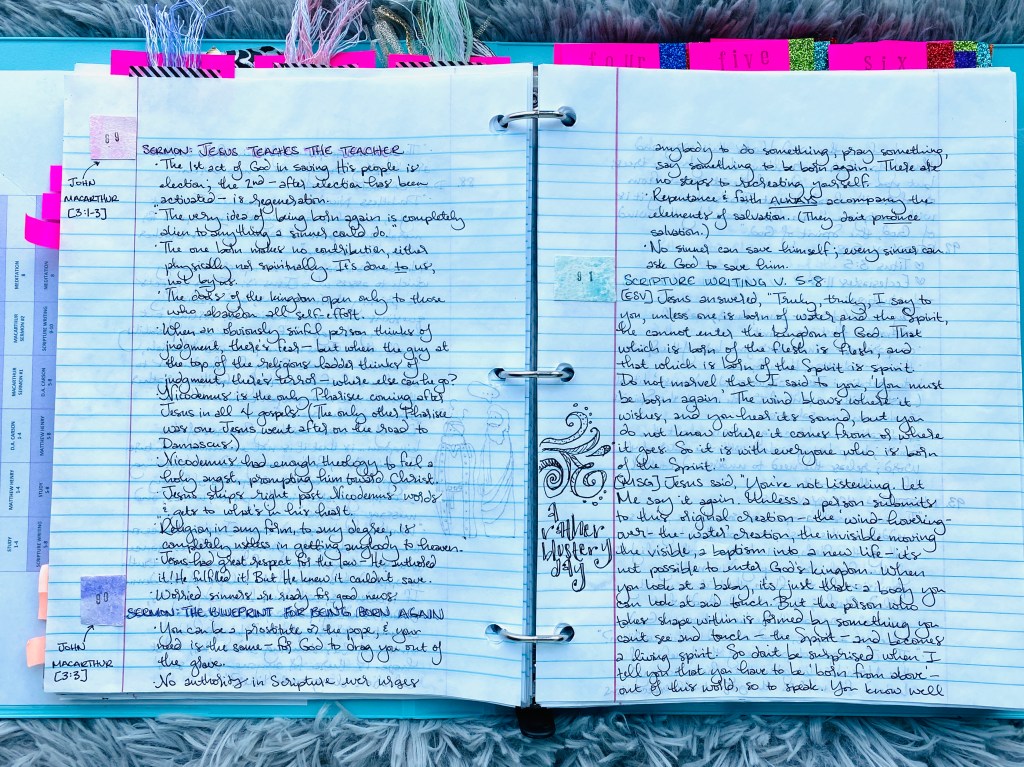 four
five
six
89
JOHN
MACARTHUR
[3:1-3]
SERMON: JESUS TEACHES THE TEACHER
· The 1st act of God in saving His people is
election; the 2nd – after election has been
activated – is regeneration.
· "The very idea of being born again is completely
alien to anything a sinner could do."
· The one born makes no contribution, either
physically nor spiritually. It's done to us,
not by us.
· The doors of the kingdom open only to those
who abandon all self-effort.
· When an obviously sinful person thinks of
judgment, there's fear – but when the guy at
the top of the religious ladder thinks of
judgment, there's terror – where else can he go?
· Nicodemus is the only Pharisee coming after
Jesus in all 4 gospels. (The only other Pharisee
was one Jesus went after on the road to
Damascus.)
· Nicodemus had enough theology to feel a
holy angst, prompting him toward Christ.
· Jesus skips right past Nicodemus' words
& gets to what's in his heart.
· Religion in any form, to any degree, is
completely useless in getting anybody to heaven.
· Jesus had great respect for the law – He authored
it! He fulfilled it! But He knew it couldn't save.
· Worried sinners are ready for good news.
90
JOHN
MACARTHUR
[3:3]
SERMON: THE BLUEPRINT FOR BEING BORN AGAIN
· You can be a prostitute or the pope, & your
need is the same – for God to drag you out of
the grave.
· No authority in Scripture ever urges
anybody to do something, pray something,
say something to be born again. There are
no steps to recreating yourself.
· Repentance & faith ALWAYS accompany the
elements of salvation. (They don't produce
salvation.)
· No sinner can save himself; every sinner can
ask God to save him.
91
SCRIPTURE WRITING V. 5-8
[ESV] Jesus answered, "Truly, truly, I say to
you, unless one is born of water and the Spirit,
he cannot enter the kingdom of God. That
which is born of the flesh is flesh, and
that which is born of the Spirit is spirit.
Do not marvel that I said to you, 'You must
be born again.' The wind blows where it
wishes, and you hear its sound, but you
do not know where it comes from or where
it goes. So it is with everyone who is born
of the Spirit."
[MSG] Jesus said, "You're not listening. Let
Me say it again. Unless a person submits
to this original creation – the 'wind-hovering-
over-the-water' creation, the invisible moving
the visible, a baptism into a new life – it's
not possible to enter God's kingdom. When
you look at a baby, it's just that: a body you
can look at and touch. But the person who
takes shape within is formed by something you
can't see and touch – the Spirit – and becomes
a living spirit. So don't be surprised when I
tell you that you have to be 'born from above' –
out of this world, so to speak. You know well
MEDITATION
MACARTHUR
SERMON #2
MACARTHUR
SERMON #1
D.A. CARSON
1-4
MATTHEW HENRY
1-4
STUDY
1-4
MEDITATION
SCRIPTURE WRITING
9-10
D.A. CARSON
5-8
MATTHEW HENRY
5-8
STUDY
5-8
SCRIPTURE WRITING
5-8